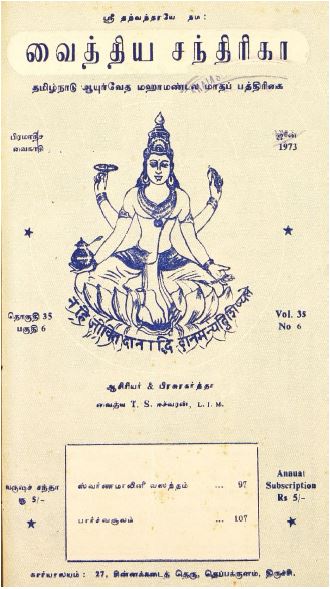 ஸ்ரீ தந்வந்தரயே நம :
வைத்திய சந்திரிகா
தமிழ்நாடு ஆயுர்வேத மஹாமண்டல மாதப் பத்திரிகை
பிரமாதீச
வைகாசி
ஜூன்
1973
தொகுதி 35
பகுதி 6
Vol. 35
No 6
न हि जीवितदानाद्धि दानमन्यद्विशिष्यते
ஆசிரியர் & பிரசுரகர்த்தா
வைத்ய T. S. ஈச்வரன், L. I. M.
வருஷச் சந்தா
ரூ 5/-
ஸ்வர்ணமாலினீ வஸந்தம் ... 97
பார்ச்வசூலம் ... 107
Annual
Subscription
Rs 5/-
கார்யாலயம் : 27, சின்னக்கடைத் தெரு, தெப்பக்குளம், திருச்சி.